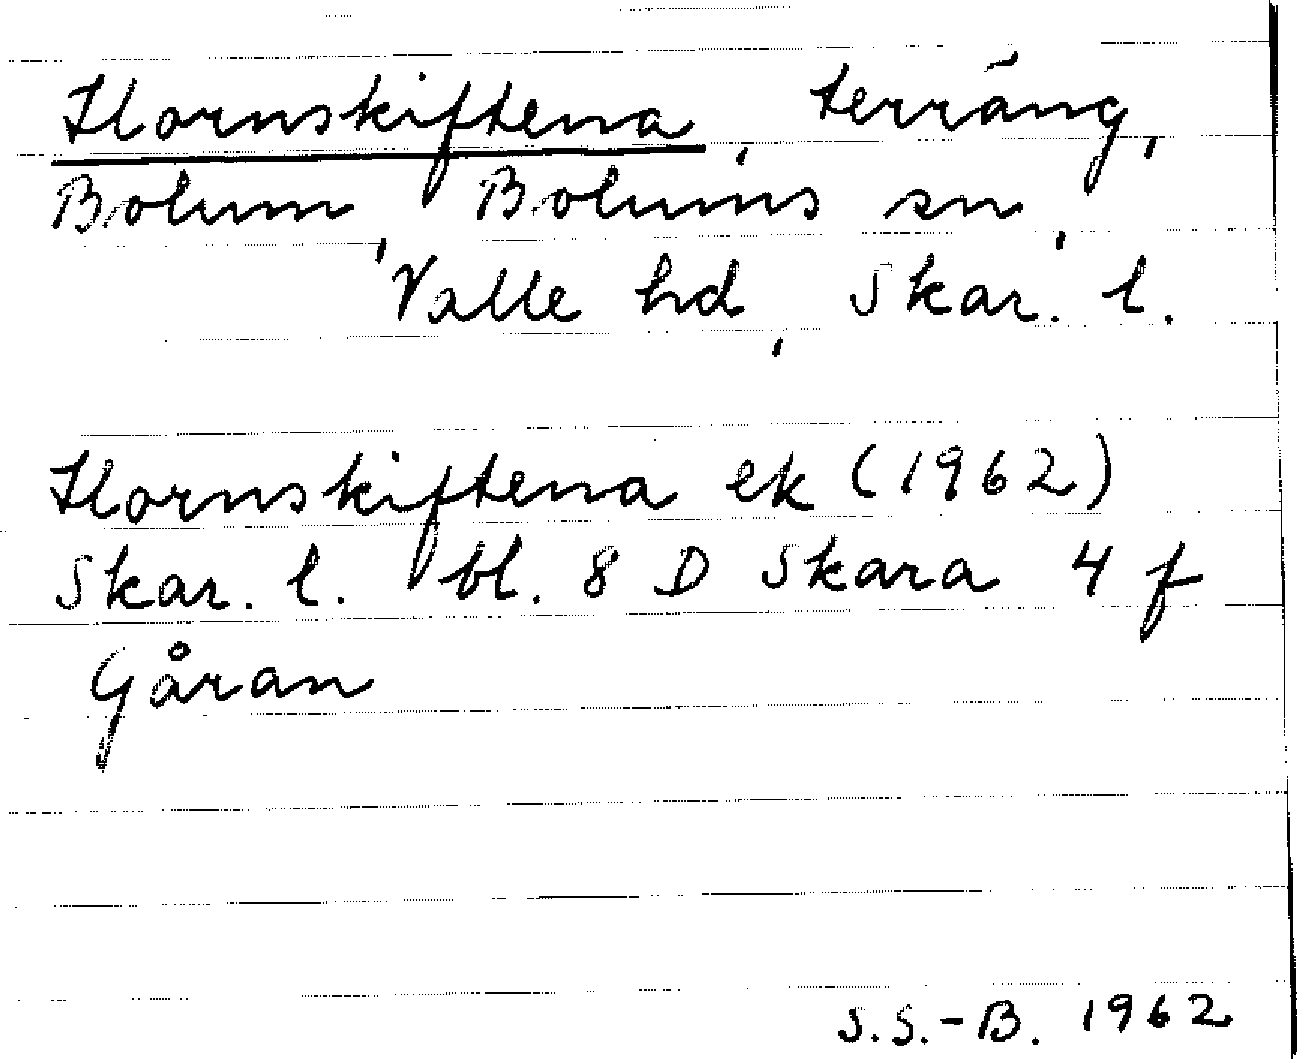 Hornskiftena, terräng,
Bolum, Bolums sn,
Valle hd, Skar. l.
Hornskiftena ek (1962)
Skar. l. bl. 8 D Skara 4 f
Gåran
S.S.-B. 1962